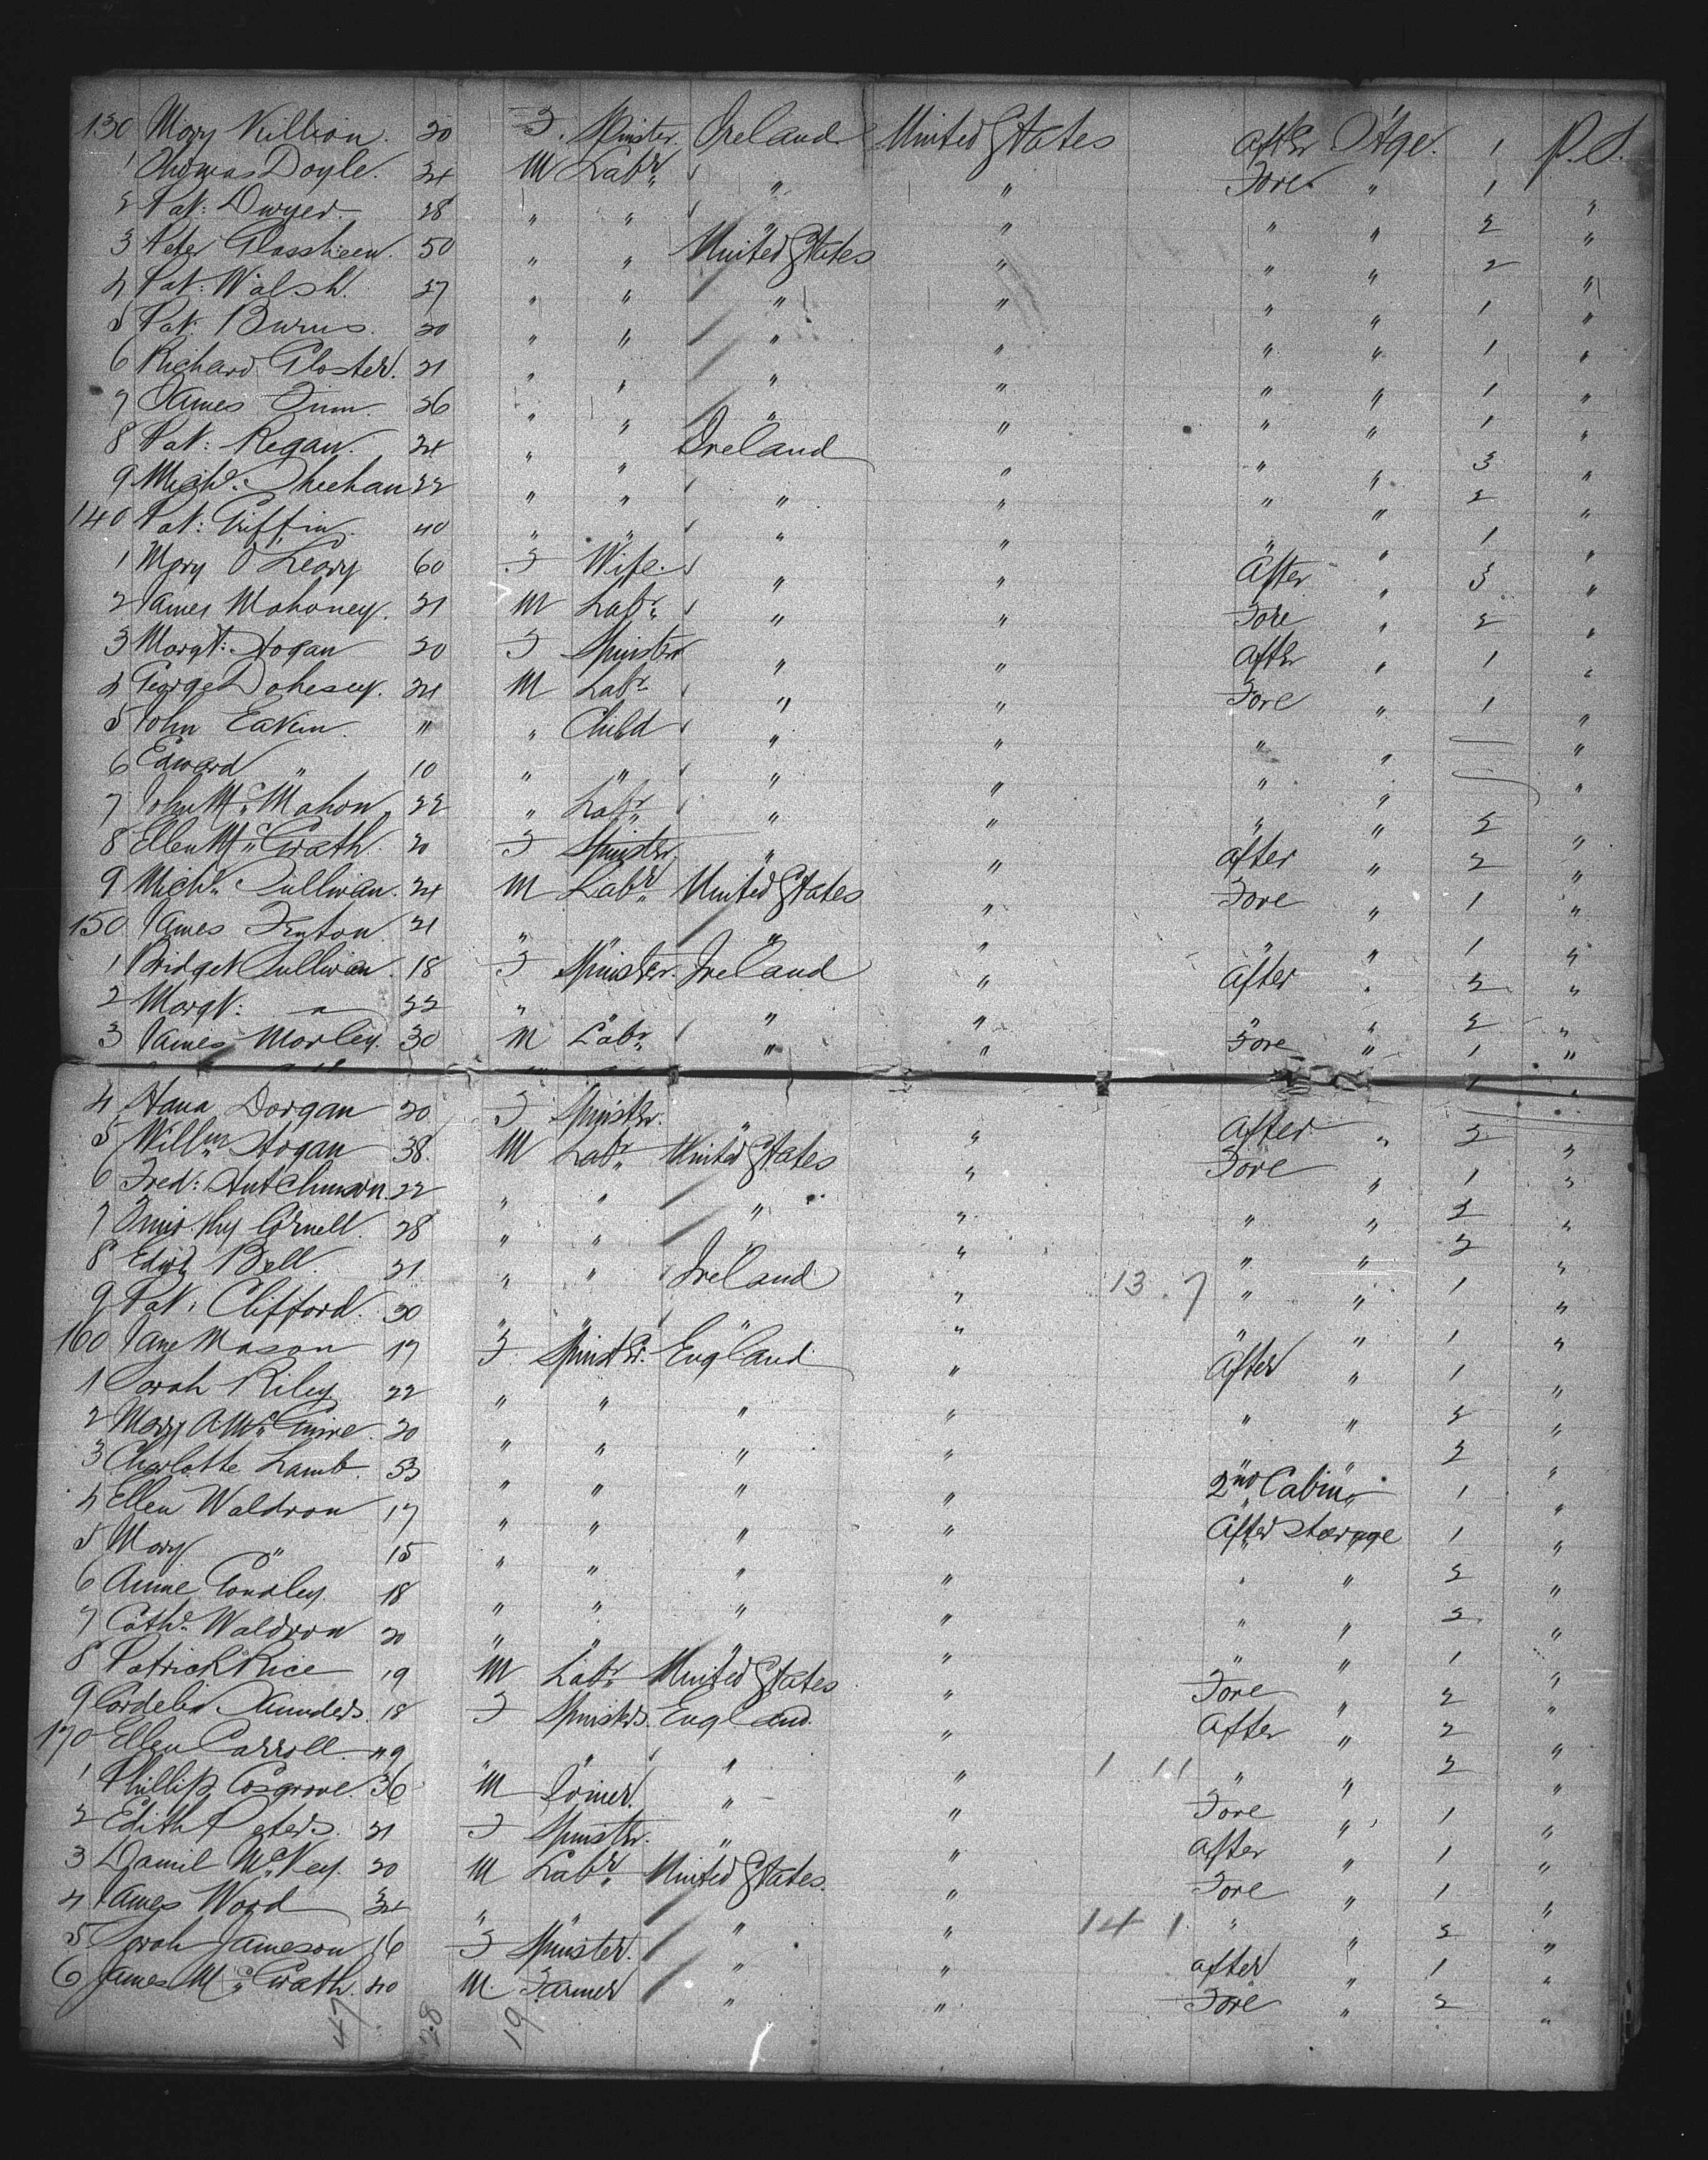 130 Mary Killion. 20 F. Spinster. Ireland United States After Stge. 1 P.S.
1 Thomas Doyle. 24 M Labr. " " Fore " 1 "
2 Pat: Dwyer. 28 " " " " " " 2 "
3 Peter Glassheen. 50 " " United States " " " 2 "
4 Pat: Walsh. 27 " " " " " " 1 "
5 Pat: Burns. 20 " " " " " " 1 "
6 Richard Gloster. 21 " " " " " " 1 "
7 James Finn. 26 " " " " " " 1 "
8 Pat: Regan. 24 " " Ireland " " " 3 "
9 Michl. Sheehan 22 " " " " " " 2 "
140 Pat: Griffin 40 " " " " " " 1 "
1 Mary O'Leary 60 F Wife. " " After " 3 "
2 James Mahoney. 21 M Labr. " " Fore " 2 "
3 Margt: Hogan 20 F Spinster " " After " 1 "
4 George Dohesey. 24 M Labr. " " Fore " 1 "
5 John Eakin. " " Child " " " " — "
6 Edward " 10 " " " " " " — "
7 John McMahon 22 " Labr. " " " " 2 "
8 Ellen McGrath. 20 F Spinster. " " After " 2 "
9 Michl. Sullivan. 24 M Labr. United States " Fore " 1 "
150 James Fenton 21 " " " " " " 1 "
1 Bridget Sullivan. 18 F Spinster. Ireland " After " 2 "
2 Margt: " 22 " " " " " " 2 "
3 James Morley. 30 M Labr. " " Fore " 1 "
4 Hana Dorgan 20 F Spinster. " " After " 2 "
5 Willm. Hogan 38. M Labr. United States " Fore " 1 "
6 Fred: Hutchinson. 22 " " " " " " 2 "
7 Timothy Cornell. 28 " " " " " " 2 "
8 Edwd. Bell. 21 " " Ireland " 13.7 " " 1 "
9 Pat: Clifford. 30 " " " " " " 1 "
160 Jane Mason 17 F Spinster. England " After " 1 "
1 Sarah Riley. 22 " " " " " " 2 "
2 Mary A. McGuire. 20 " " " " " " 2 "
3 Charlotte Lamb. 53 " " " " 2nd Cabin 1 "
4 Ellen Waldron 17 " " " " After steerage 1 "
5 Mary " 15 " " " " " " 2 "
6 Annie Condley. 18 " " " " " " 2 "
7 Cathe. Waldron 20 " " " " " " 1 "
8 Patrick Rice 19 M Labr. United States " Fore " 2 "
9 Cordelia Saunders. 18 F Spinsters. England. " After " 2 "
170 Ellen Carroll. 49 " " " " 1 11 " " 2 "
1 Phillip Cosgrove. 36 M Joiner. " " Fore " 1 "
2 Edith Peters. 21 F Spinster. " " After " 1 "
3 Daniel McVey. 20 M Labr. United States. " Fore " 1 "
4 James Wood 34 " " " " 14 1 " " 2 "
5 Sarah Jameson 16 F Spinster. " " After " 1 "
6 James McGrath. 40 M. Farmer " " Fore " 2 "
47 28 19